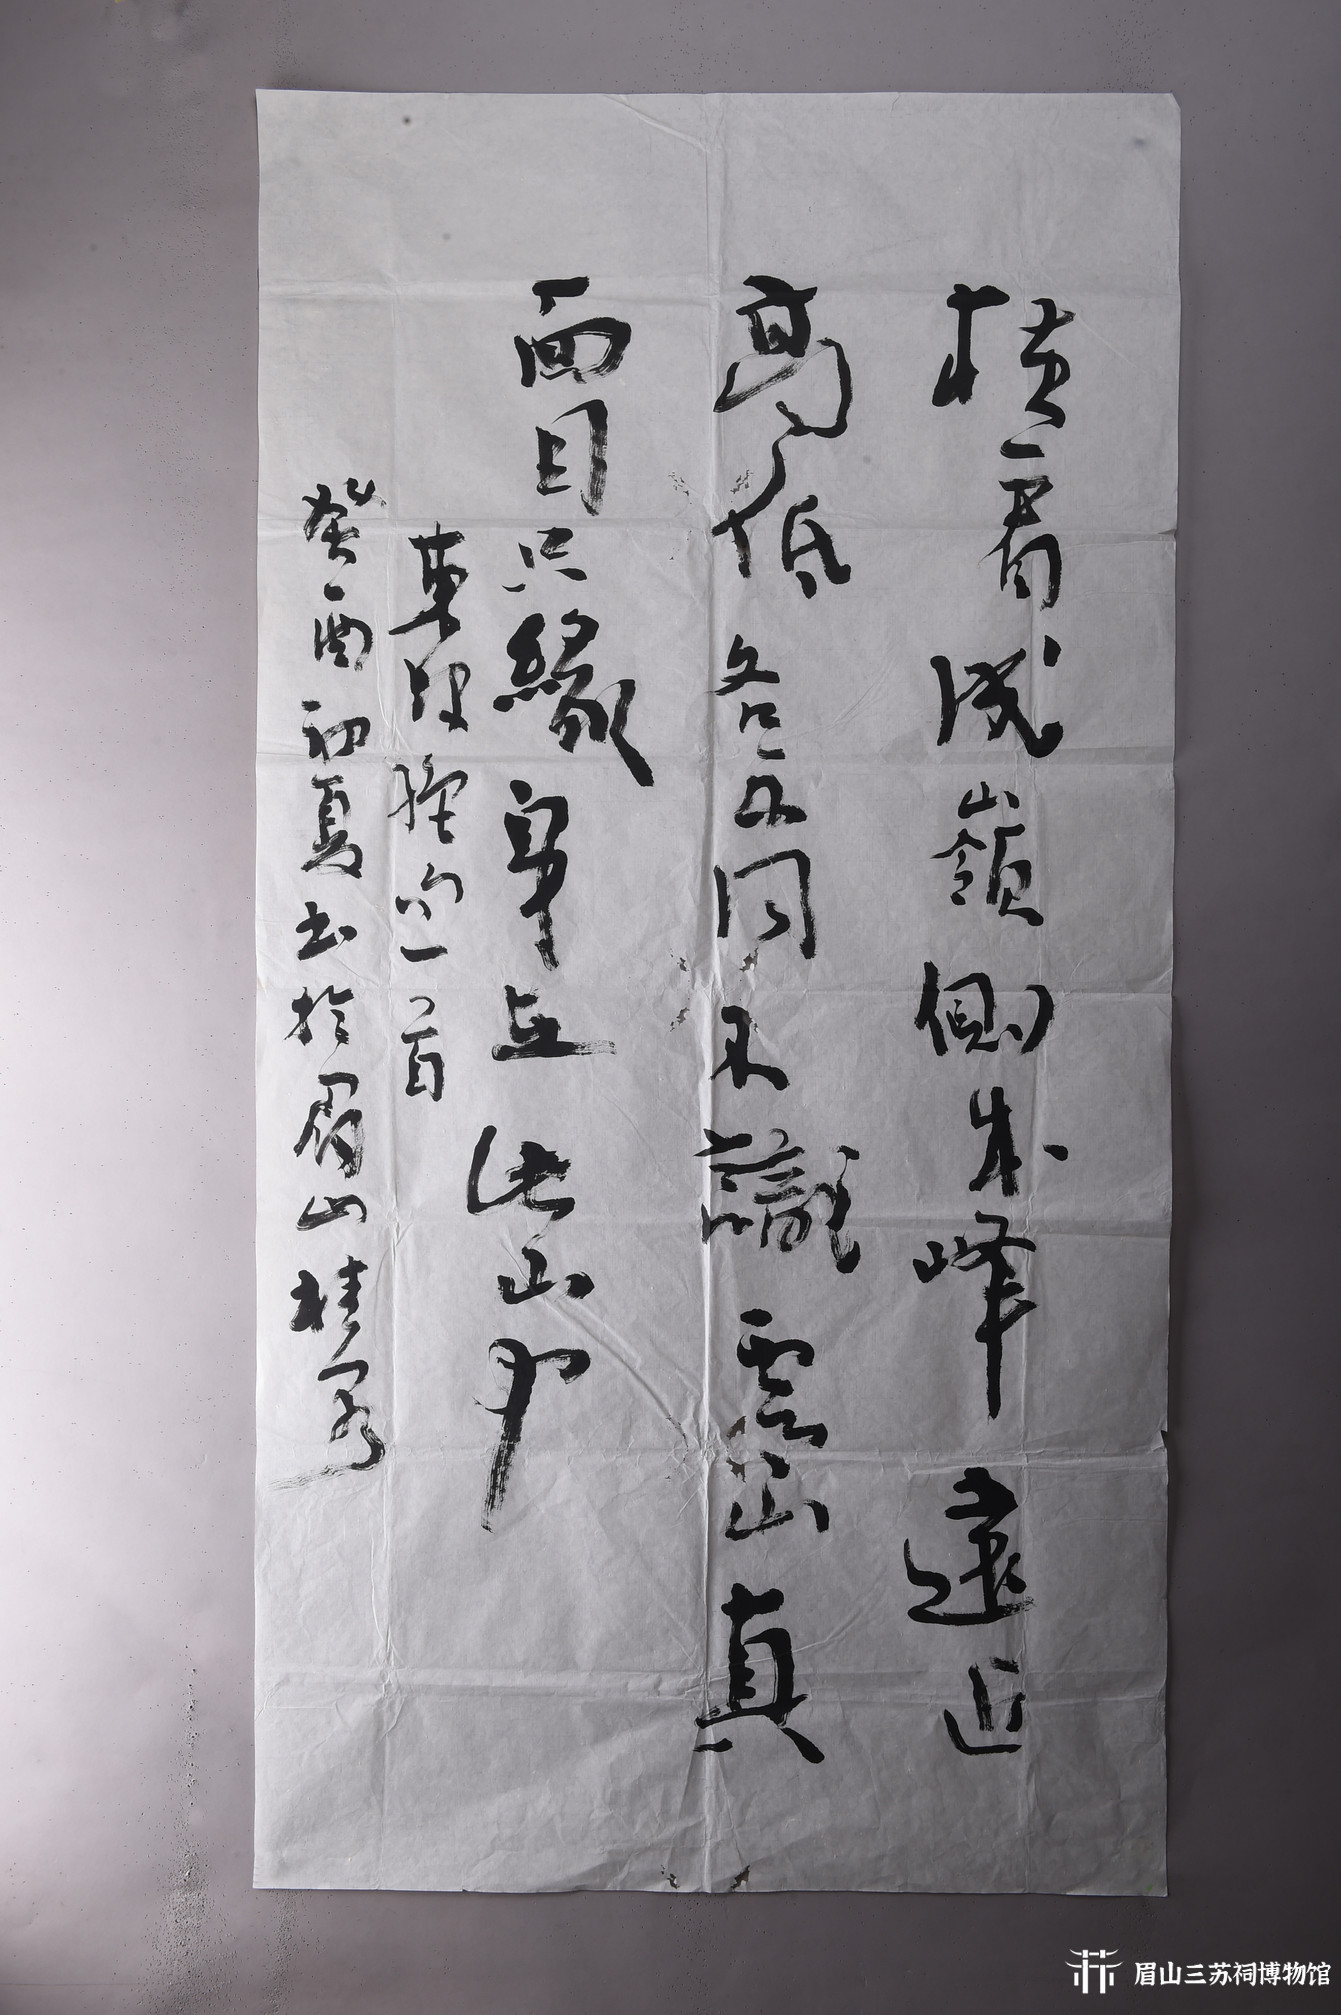 橫看成嶺側成峰遠近
高低各不同不識廬山真
面目只緣身在此山中
東坡絕句一首
癸酉初夏書於眉山桂
眉山三苏祠博物馆